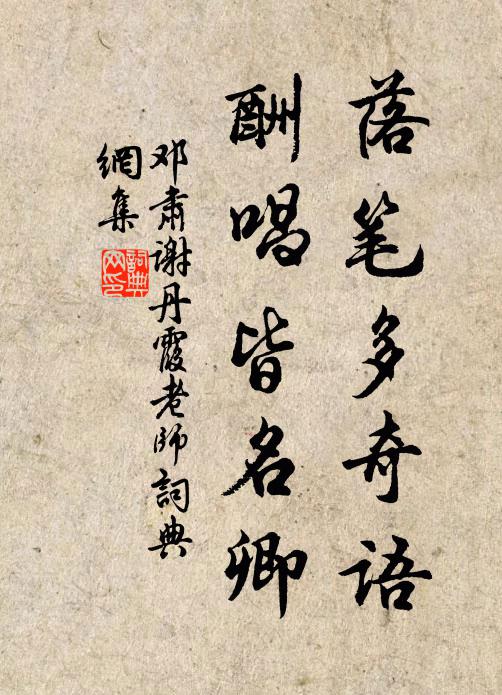 落笔多奇语
酬唱皆名卿
邓肃谢丹霞老师詞典
網集
詞典
网印